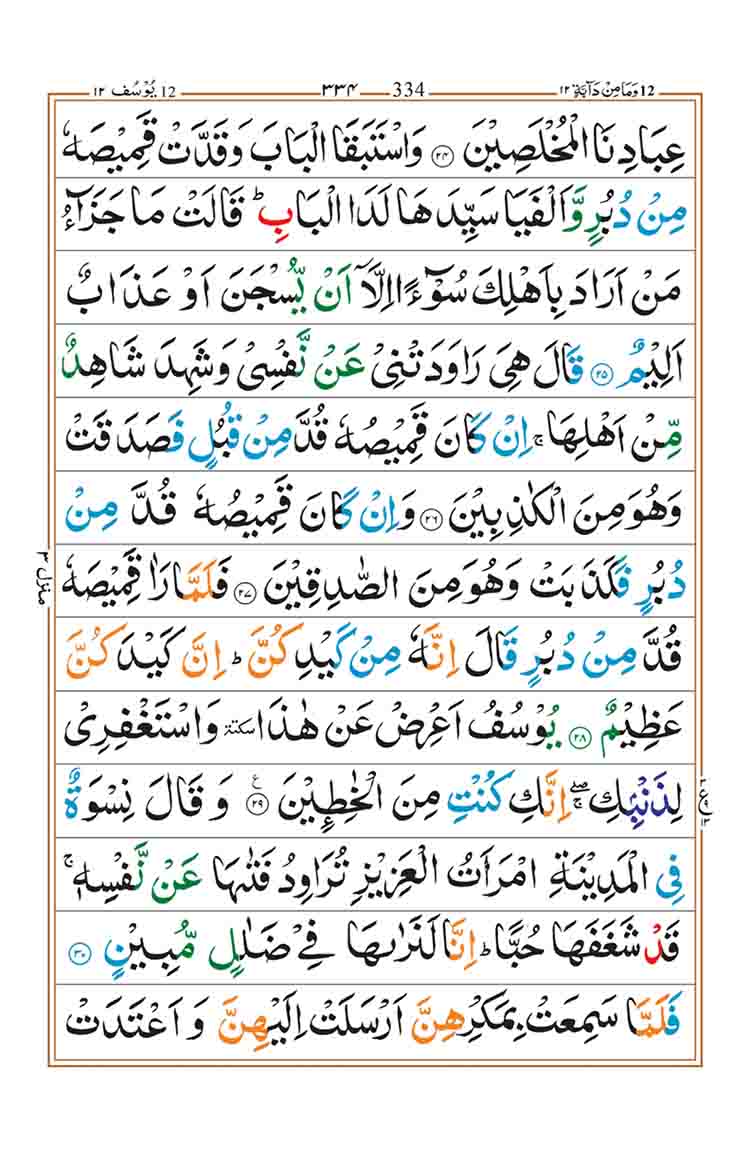 12 وَمَا مِنْ دَآبَّةٍ ۱۲ 334 ۳۳۴ 12 يُوْسُف ۱۲
عِبَادِنَا الْمُخْلَصِيْنَ ۲۴ وَاسْتَبَقَا الْبَابَ وَقَدَّتْ قَمِيْصَهٗ
مِنْ دُبُرٍ وَّاَلْفَيَا سَيِّدَهَا لَدَا الْبَابِ ؕ قَالَتْ مَا جَزَآءُ
مَنْ اَرَادَ بِاَهْلِكَ سُوْٓءًا اِلَّاۤ اَنْ يُّسْجَنَ اَوْ عَذَابٌ
اَلِيْمٌ ۲۵ قَالَ هِىَ رَاوَدَتْنِىْ عَنْ نَّفْسِىْ وَشَهِدَ شَاهِدٌ
مِّنْ اَهْلِهَا ۚ اِنْ كَانَ قَمِيْصُهٗ قُدَّ مِنْ قُبُلٍ فَصَدَقَتْ
وَهُوَ مِنَ الْكٰذِبِيْنَ ۲۶ وَاِنْ كَانَ قَمِيْصُهٗ قُدَّ مِنْ
دُبُرٍ فَكَذَبَتْ وَهُوَ مِنَ الصّٰدِقِيْنَ ۲۷ فَلَمَّا رَاٰ قَمِيْصَهٗ
قُدَّ مِنْ دُبُرٍ قَالَ اِنَّهٗ مِنْ كَيْدِكُنَّ ؕ اِنَّ كَيْدَكُنَّ
عَظِيْمٌ ۲۸ يُوْسُفُ اَعْرِضْ عَنْ هٰذَا سكتة وَاسْتَغْفِرِىْ
لِذَنْۢبِكِ ۖۚ اِنَّكِ كُنْتِ مِنَ الْخٰطِـِٕيْنَ ۲۹ ع وَ قَالَ نِسْوَةٌ
فِى الْمَدِيْنَةِ امْرَاَتُ الْعَزِيْزِ تُرَاوِدُ فَتٰٮهَا عَنْ نَّفْسِهٖ ۚ
قَدْ شَغَفَهَا حُبًّا ؕ اِنَّا لَنَرٰٮهَا فِىْ ضَلٰلٍ مُّبِيْنٍ ۳۰
فَلَمَّا سَمِعَتْ بِمَكْرِهِنَّ اَرْسَلَتْ اِلَيْهِنَّ وَ اَعْتَدَتْ
منزل ۳